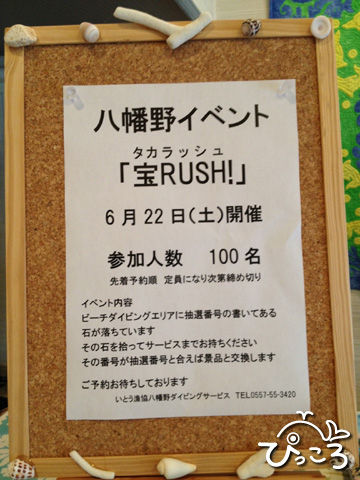 八幡野イベント
タカラッシュ
「宝RUSH!」
6月22日(土)開催
参加人数 100名
先着予約順 定員になり次第締め切り
イベント内容
ビーチダイビングエリアに抽選番号の書いてある
石が落ちています
その石を拾ってサービスまでお持ちください
その番号が抽選番号と合えば景品と交換します
ご予約お待ちしております
いとう漁協八幡野ダイビングサービス TEL0557-55-3420
ぴっころ